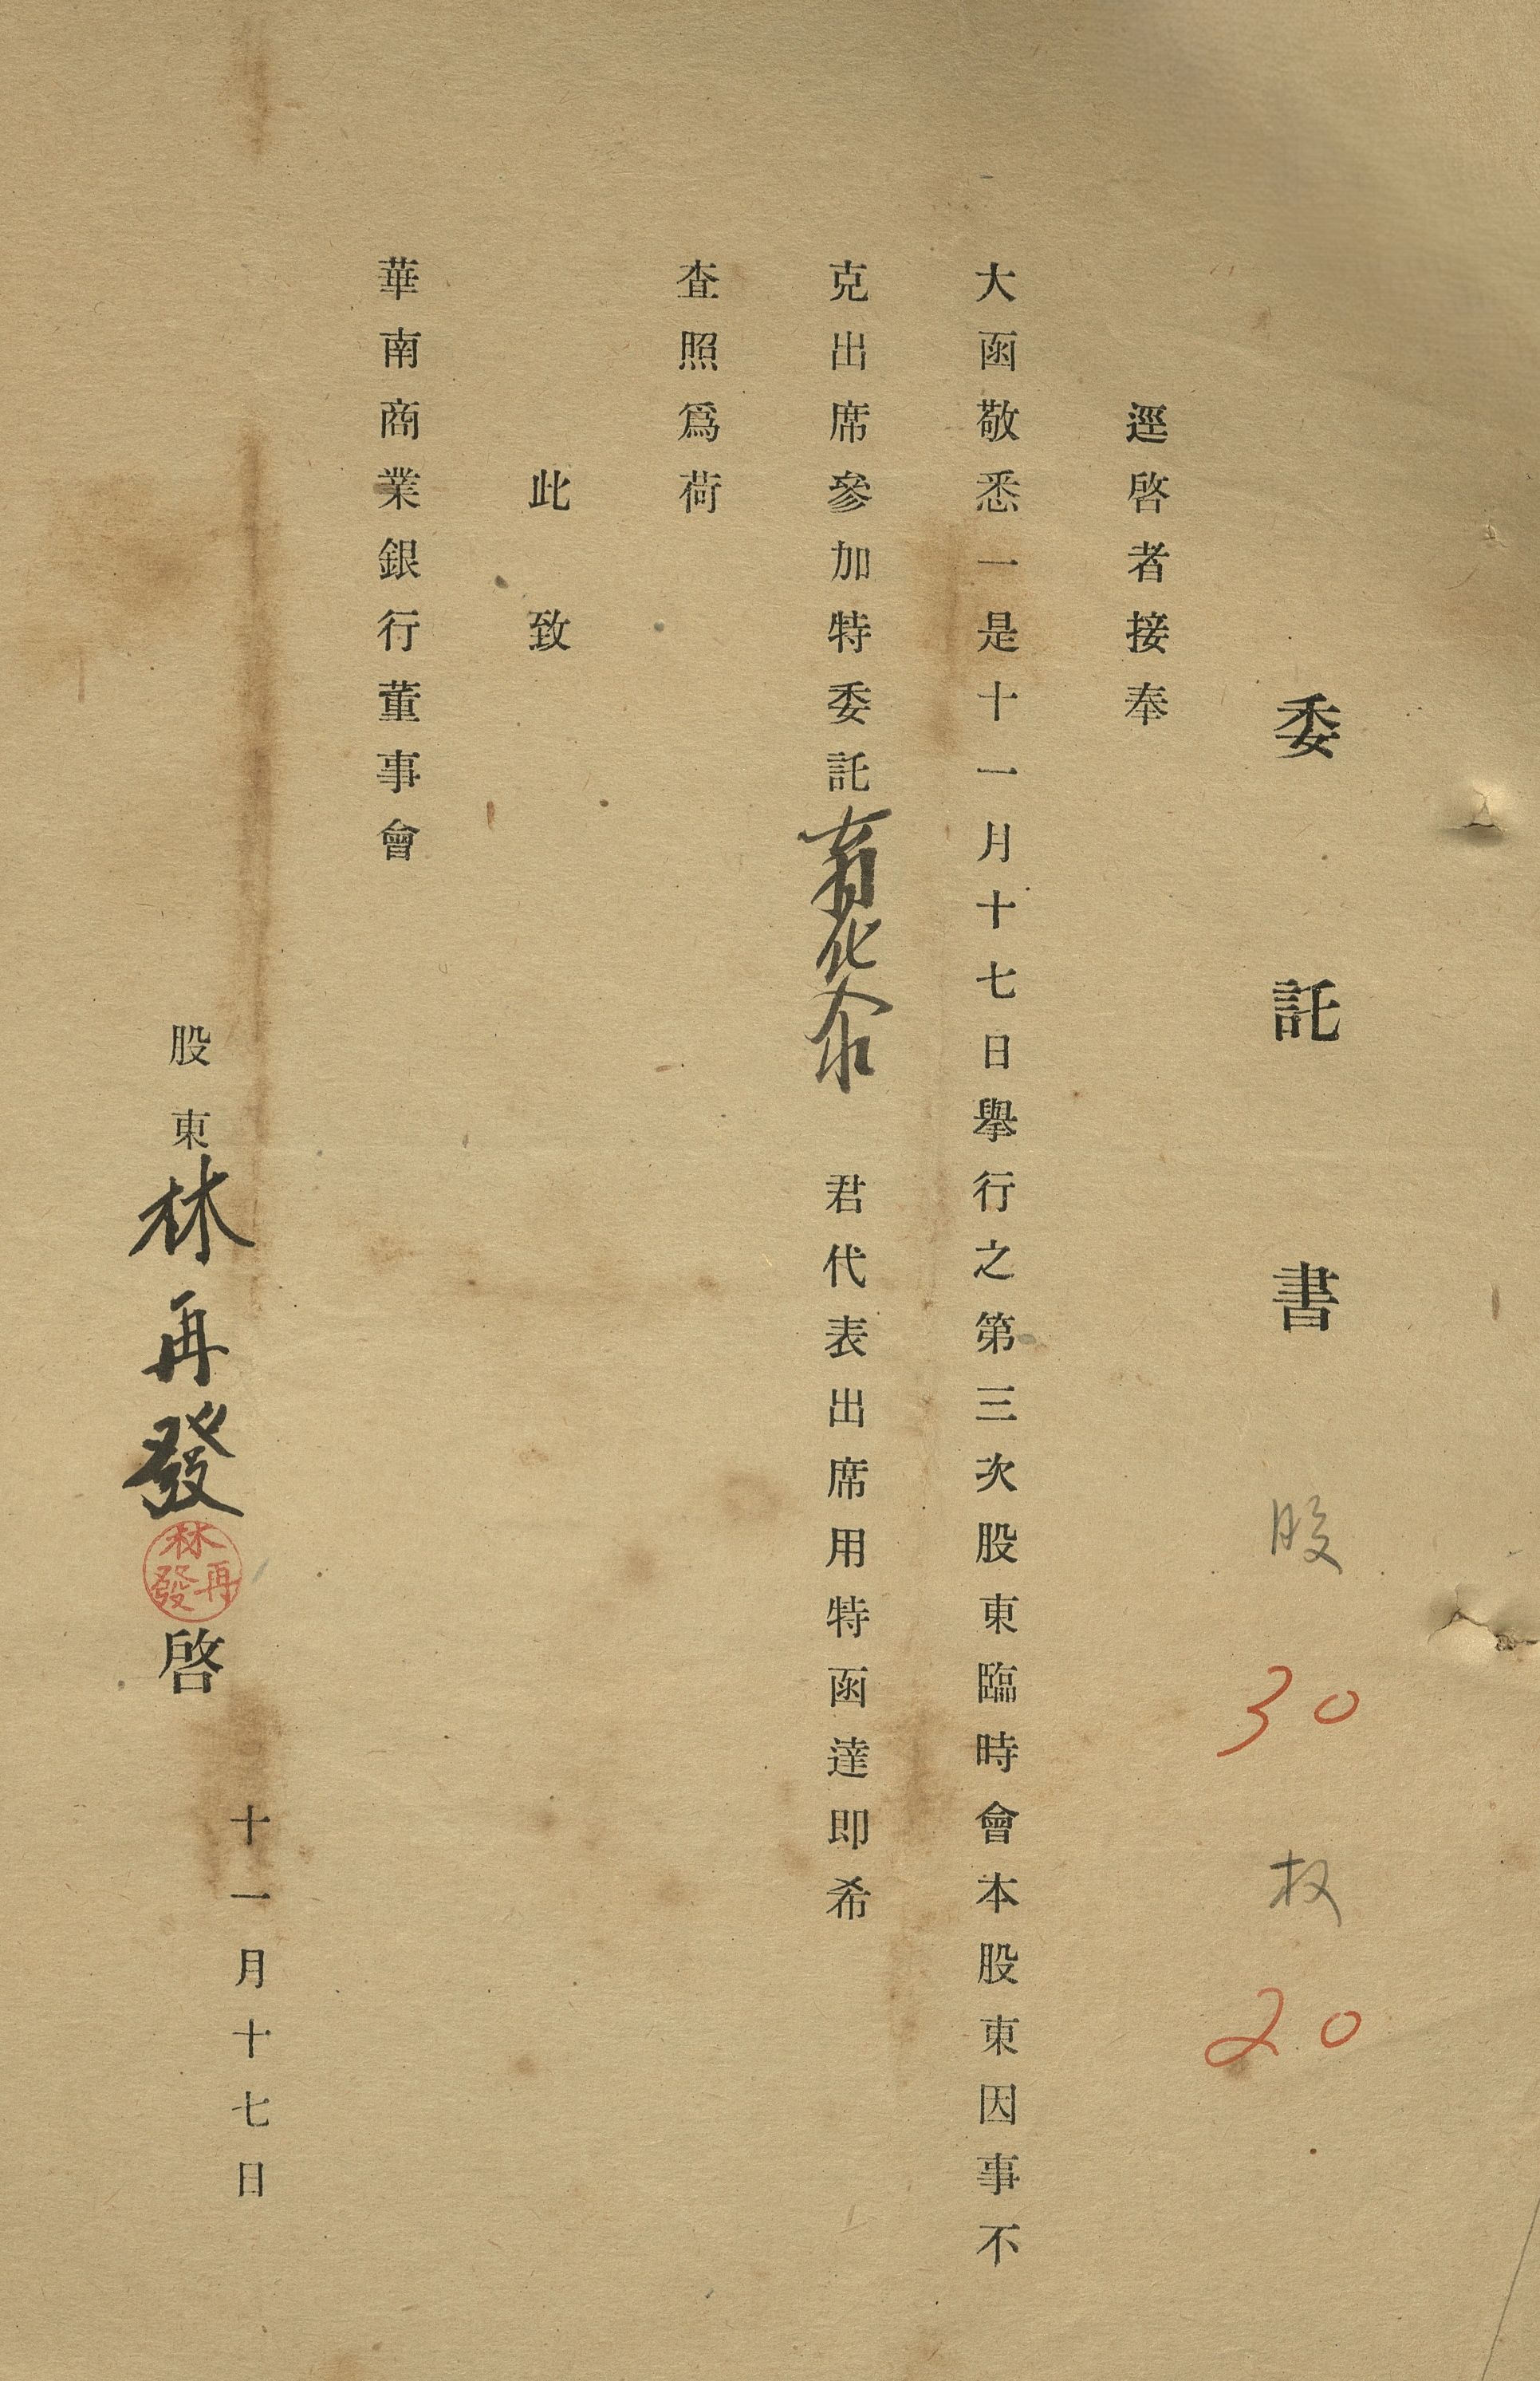 委託書 股 30 权 20
逕啓者接奉
大函敬悉一是十一月十七日舉行之第三次股東臨時會本股東因事不
克出席參加特委託 君代表出席用特函達即希
查照爲荷
此致
華南商業銀行董事會
十一月十七日
股東林再發 林再發 啓